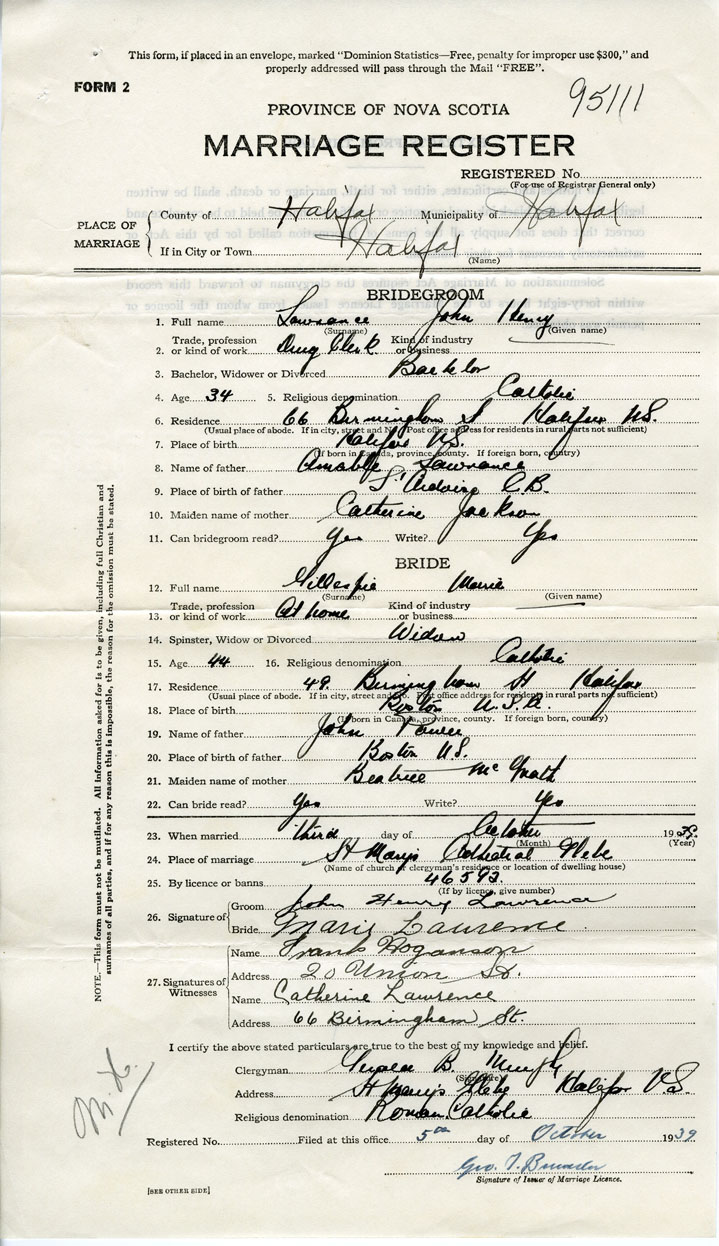 This form, if placed in an envelope, marked "Dominion Statistics—Free, penalty for improper use $300," and
properly addressed will pass through the Mail "FREE".
FORM 2
95111
PROVINCE OF NOVA SCOTIA
MARRIAGE REGISTER
REGISTERED No.
(For use of Registrar General only)
PLACE OF MARRIAGE
County of Halifax Municipality of Halifax
If in City or Town Halifax
(Name)
BRIDEGROOM
1. Full name Lawrance John Henry
(Surname) (Given name)
2. Trade, profession or kind of work Drug Clerk Kind of industry or business
3. Bachelor, Widower or Divorced Bachelor
4. Age 34 5. Religious denomination Catholic
6. Residence 66 Birmingham St Halifax N.S.
(Usual place of abode. If in city, street and No. Post office address for residents in rural parts not sufficient)
7. Place of birth Halifax N.S.
(If born in Canada, province, county. If foreign born, country)
8. Name of father Amable Lawrance
9. Place of birth of father C.B.
10. Maiden name of mother Catherine Jackson
11. Can bridegroom read? Yes Write? Yes
BRIDE
12. Full name Gillespie Marie
(Surname) (Given name)
13. Trade, profession or kind of work At home Kind of industry or business
14. Spinster, Widow or Divorced Widow
15. Age 44 16. Religious denomination Catholic
17. Residence 49 Birmingham St Halifax
(Usual place of abode. If in city, street and No. Post office address for residents in rural parts not sufficient)
18. Place of birth Boston U.S.A.
(If born in Canada, province, county. If foreign born, country)
19. Name of father John Power
20. Place of birth of father Boston U.S.
21. Maiden name of mother Beatrice McGrath
22. Can bride read? Yes Write? Yes
23. When married third day of October 1939
(Month) (Year)
24. Place of marriage St Marys Cathedral Glebe
(Name of church or clergyman's residence or location of dwelling house)
25. By licence or banns 46593
(If by licence, give number)
26. Signature of
Groom John Henry Lawrence
Bride Marie Laurence
27. Signatures of Witnesses
Name Frank Hoganson
Address 20 Union St.
Name Catherine Lawrence
Address 66 Birmingham St.
I certify the above stated particulars are true to the best of my knowledge and belief.
Clergyman B. Murphy
(Signature)
Address St Marys Glebe Halifax N.S.
Religious denomination Roman Catholic
Registered No. Filed at this office 5th day of October 1939
Geo.
Signature of Issuer of Marriage Licence.
[SEE OTHER SIDE]
NOTE.—This form must not be mutilated. All information asked for is to be given, including full Christian and
surnames of all parties, and if for any reason this is impossible, the reason for the omission must be stated.